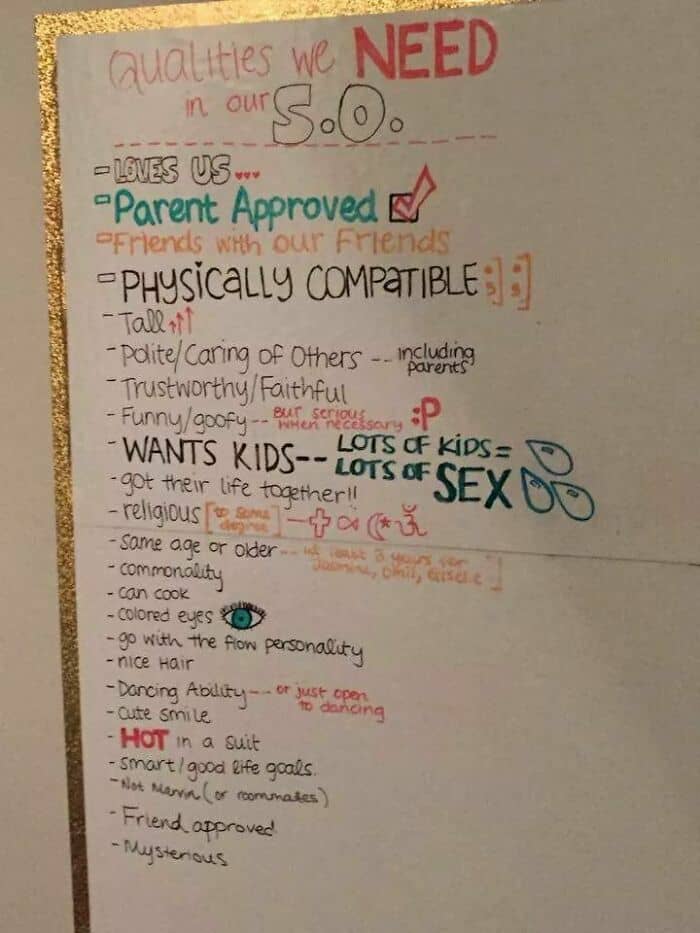 Qualities we NEED
in our S.O.
- LOVES US...
- Parent Approved
- Friends with our Friends
- PHYSICALLY COMPATIBLE :] :]
- Tall
- Polite/Caring of Others -- including parents
- Trustworthy/Faithful
- Funny/goofy -- But serious when necessary :P
- WANTS KIDS -- LOTS OF KIDS = LOTS OF SEX
- got their life together!!
- religious [to some degree] -
- same age or older -- at least 3 years for Jasmine,
- commonality
- can cook
- colored eyes
- go with the flow personality
- nice Hair
- Dancing Ability -- or just open to dancing
- cute smile
- HOT in a suit
- smart/good life goals.
- Not Marvin (or roommates)
- Friend approved
- Mysterious